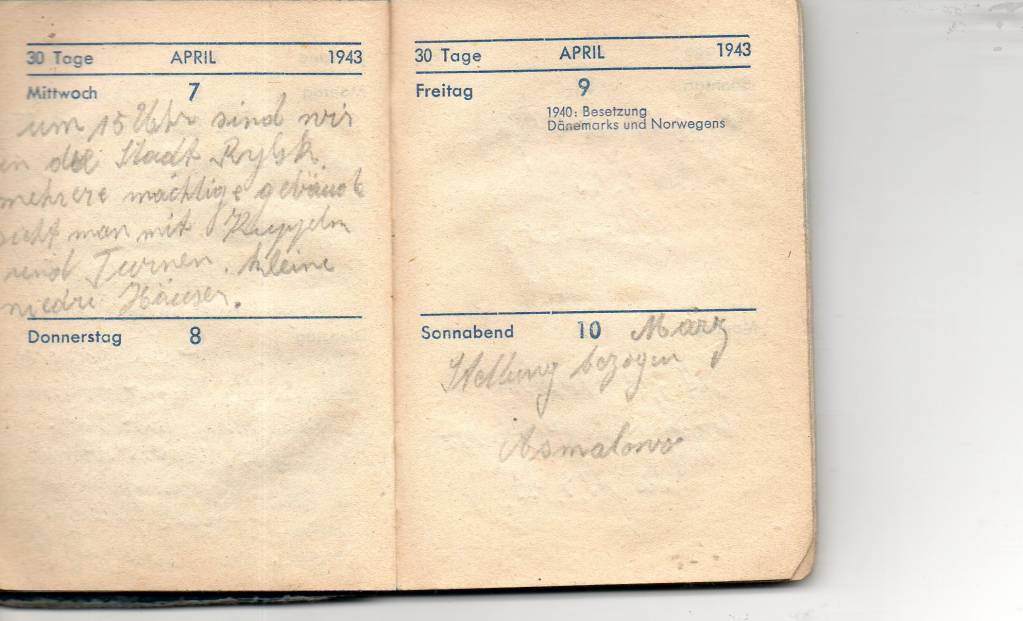 30 Tage APRIL 1943
Mittwoch 7
um 15 Uhr sind wir
in die Stadt Rylsk.
mehrere mächtige gebäude
sieht man mit Kuppeln
und Turmen. kleine
niedri Häuser.
Donnerstag 8
30 Tage APRIL 1943
Freitag 9
1940: Besetzung
Dänemarks und Norwegens
Sonnabend 10 März
Stellung bezogen
Asmalowo